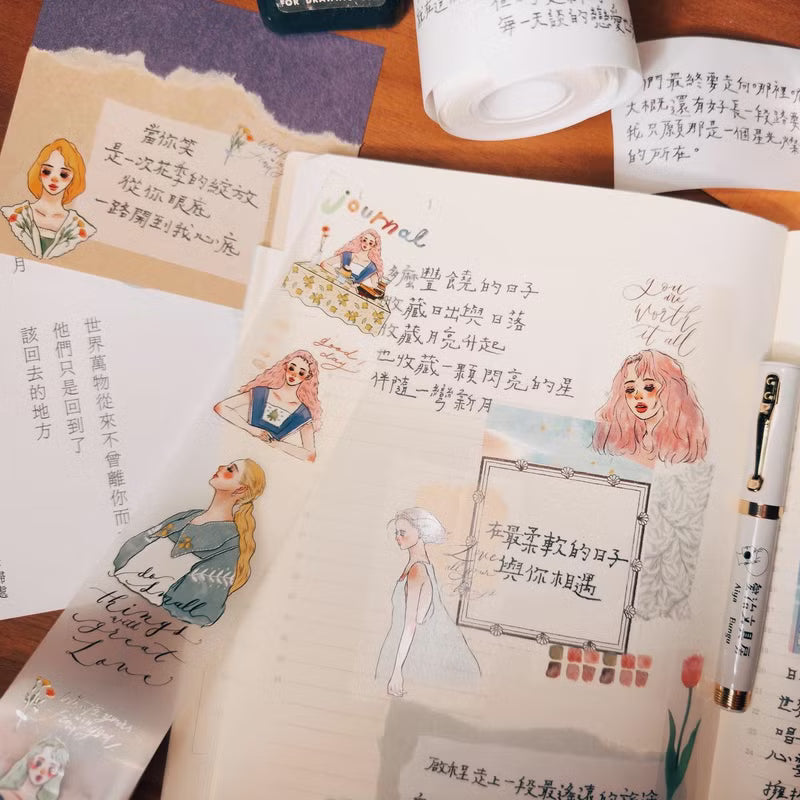 FOR DRAWING
每一天談的戀愛
們最終要走向那裡
大概還有好長一段路要
我只願那是一個星光燦
的所在。
當你笑
是一次花季的綻放
從你眼底
一路開到我心底
月
世界萬物從來不曾離你而
他們只是回到了
該回去的地方
歸處
journal
多麼豐饒的日子
收藏日出與日落
收藏月亮升起
也收藏一顆閃亮的星
伴隨一彎新月
good
day!
you
are
worth
it all
在最柔軟的日子
與你相遇
do small
things
with
great
Love
愛治文具房
Aiya Bungu
啟程走上一段最遙遠的旅途
日
世界
唱
心
擁抱